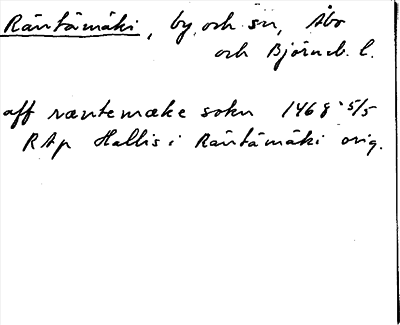 Räntämäki, by och sn, Åbo
och Björneb. l.
aff ræntemæke sokn 1468 5/5
R Ap Hallis i Räntämäki orig.